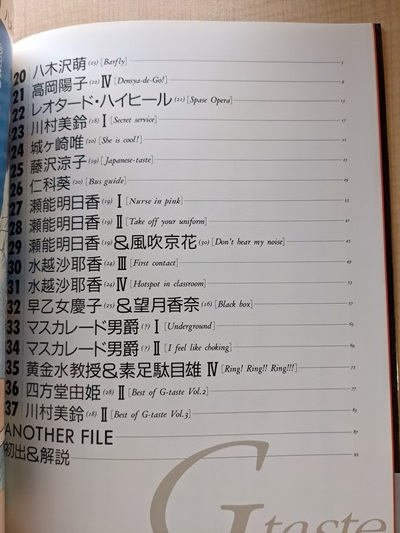 20 八木沢萌(23)[Barfly] 1
21 高岡陽子(22)Ⅳ[Densya-de-Go!]
22 レオタード・ハイヒール(21)[Spase Opera]
23 川村美鈴(18)Ⅰ[Secret service]
24 城ヶ崎唯(20)[She is cool!]
25 藤沢涼子(19)[Japanese-taste]
26 仁科葵(20)[Bus guide]
27 瀬能明日香(19)Ⅰ[Nurse in pink]
28 瀬能明日香(19)Ⅱ[Take off your uniform]
29 瀬能明日香(19)&風吹京花(30)[Don't hear my noise]
30 水越沙耶香(24)Ⅲ[First contact]
31 水越沙耶香(24)Ⅳ[Hotspot in classroom]
32 早乙女慶子(25)&望月香奈(16)[Black box] 57
33 マスカレード男爵(?)Ⅰ[Underground]
34 マスカレード男爵(?)Ⅱ[I feel like choking]
35 黄金水教授&素足駄目雄Ⅳ[Ring! Ring!! Ring!!!]
36 四方堂由姫(18)Ⅱ[Best of G-taste Vol.2]
37 川村美鈴(18)Ⅱ[Best of G-taste Vol.3]
ANOTHER FILE 87
初出&解説
G-taste